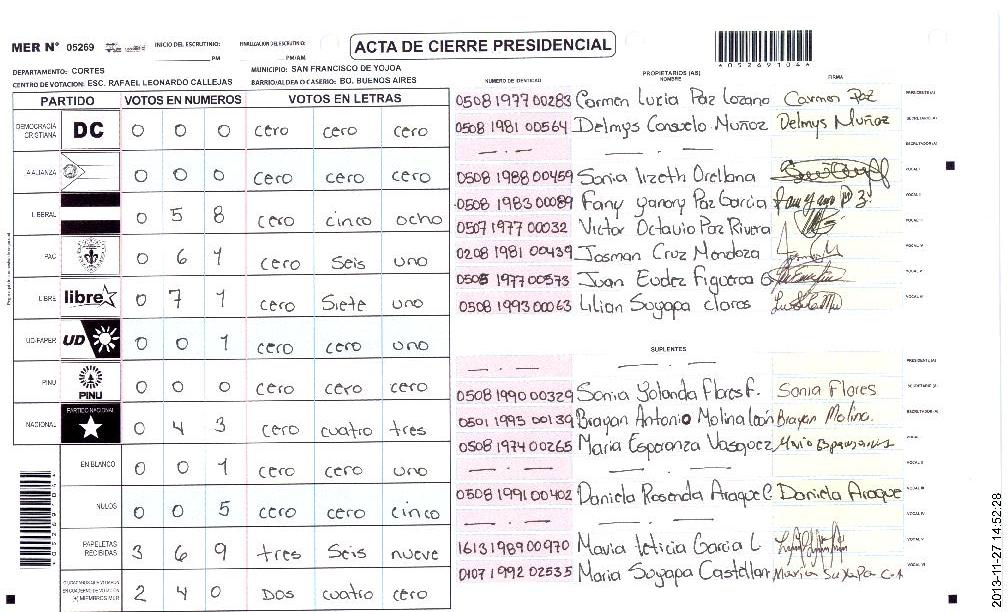 MER N° 05269 INICIO DEL ESCRUTINIO: FINALIZACION DEL ESCRUTINIO: ACTA DE CIERRE PRESIDENCIAL
PM PM/AM
4 0 5 2 6 9 1 0 4 4
DEPARTAMENTO: CORTES MUNICIPIO: SAN FRANCISCO DE YOJOA
CENTRO DE VOTACION: ESC. RAFAEL LEONARDO CALLEJAS BARRIO/ALDEA O CASERIO: BO. BUENOS AIRES
NUMERO DE IDENTIDAD PROPIETARIOS (AS) NOMBRE FIRMA
PARTIDO VOTOS EN NUMEROS VOTOS EN LETRAS
DEMOCRACIA CRISTIANA DC 0 0 0 cero cero cero
ALIANZA 0 0 0 cero cero cero
LIBERAL 0 5 8 cero cinco ocho
PAC 0 6 1 cero Seis uno
LIBRE libre 0 7 1 cero Siete uno
UD-FAPER UD 0 0 1 cero cero uno
PINU PINU 0 0 0 cero cero cero
NACIONAL PARTIDO NACIONAL 0 4 3 cero cuatro tres
EN BLANCO 0 0 1 cero cero uno
NULOS 0 0 5 cero cero cinco
PAPELETAS RECIBIDAS 3 6 9 tres Seis nueve
2 4 0 Dos cuatro cero
0508 1977 00283 Carmen Luxia Paz Lozano Carmen Paz PRESIDENTE(A)
0508 1981 00564 Delmys Consuelo Muñoz Delmys Muñoz SECRETARIO (A)
— . — — . — ESCRUTADOR (A)
0508 1988 00459 Sonia lizeth Orellana VOCAL I
0508 1983 00089 Fany Yanory Paz Garcia VOCAL II
0507 1977 00032 Victor Octavio Paz Rivera
0208 1981 00439 Josman Cruz Mendoza VOCAL IV
0505 1977 00573 Juan Eudez Figueroa G VOCAL V
0508 1993 00063 Lilian Suyapa claros VOCAL VI
SUPLENTES
— . — — . — PRESIDENTE (A)
0508 1990 00329 Sonia Yolanda Flores F. Sonia Flores SECRETARIO (A)
0501 1995 00139 Brayan Antonio Molina león Brayan Molina. ESCRUTADOR (A)
0508 1974 00265 Maria Esperanza Vasquez VOCAL I
— . — — . — VOCAL II
0508 1991 00402 Daniela Rosenda Araque C. Daniela Araque VOCAL III
— . — — . — VOCAL IV
1613 1989 00970 Maria leticia Garcia L VOCAL V
0107 1992 02535 Maria Suyapa Castellan Maria Suyapa C.A VOCAL VI
2013-11-27 14:52:28